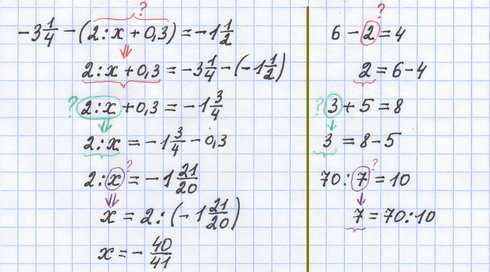 ?
-3 1/4 - (2 : x + 0,3) = -1 1/2
2 : x + 0,3 = -3 1/4 - (-1 1/2)
? 2 : x + 0,3 = -1 3/4
2 : x = -1 3/4 - 0,3
?
2 : x = -1 21/20
x = 2 : (-1 21/20)
x = - 40/41
?
6 - 2 = 4
2 = 6 - 4
? 3 + 5 = 8
3 = 8 - 5
?
70 : 7 = 10
7 = 70 : 10